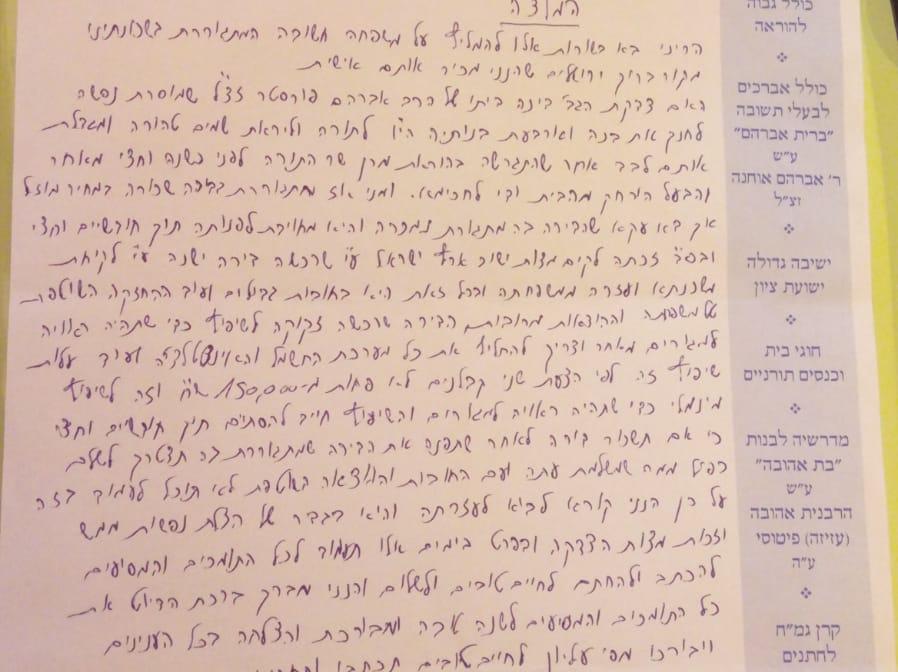 המלצה
הריני בא בשורות אלו להמליץ על משפחה חשובה המתגוררת בשכונתינו
מקור ברוך ירושלים שהנני מכיר אותם אישית
האם צדקת הגב' בינה ביתו של הרב אברהם פורסטר זצ"ל שמוסרת נפשה
לחנך את בנה וארבעת בנותיה הי"ו לתורה וליראת שמים טהורה ומגדלת
אותם לבד אחר שהתגרשה בהוראת מרן שר התורה לפני כשנה וחצי מאחר
והבעל הורחק מהבית ודי לחכימא. ומני אז מתגוררת בדירה שכורה במחיר מוזל
אך דא עקא שהדירה בה מתגורת נמכרה והיא מחויבת לפנותה תוך חודשיים וחצי
ובס"ד זכתה לקים מצות ישוב ארץ ישראל ע"י שרכשה דירה ישנה ע"י לקיחת
משכנתא ועזרה ממשפחתה ובכל זאת היא בחובות גדולים ועוב ההחזקה השוטפת
של משפחתה וההוצאות מרובות הדירה שרכשה זקוקה לשיפוץ כדי שתהיה ראויה
למגורים מאחר וצריך להחליף את כל מערכת החשמל והאינסטלציה ועוד עלות
שיפוץ זה לפי הצעת שני קבלנים לא פחות מ-150,000 ש"ח וזה לשיפוץ
מינמלי כדי שתהיה ראוויה למגורים והשיפוץ חייב להסתיים תוך חודשיים וחצי
כי אם תשכור דירה לאחר שתפנה את הדירה שמתגוררת בה תצטרך לשלם
כפול ממה שמשלמת עתה ועם החובות וההוצאה השוטפת לא תוכל לעמוד בזה
על כן הנני קורא לבוא לעזרתה והיא בגדר של הצלת נפשות ממש
וזכות מצות הצדקה ובפרט בימים אלו תעמוד לכל התומכים והמסיעים
להכתב ולהחתם לחיים טובים ולשלום והנני מברך ברכת הדיוט את
כל התומכים והמסיעים לשנה טובה ומבורכת והצלחה בכל הענינים
ויבורכו מפי עליון לחיים טובים תכתבו
כולל גבוה
להוראה
כולל אברכים
לבעלי תשובה
"ברית אברהם"
ע"ש
ר' אברהם אוחנה
זצ"ל
ישיבה גדולה
ישועת ציון
חוגי בית
וכנסים תורניים
מדרשיה לבנות
"בת אהובה"
ע"ש
הרבנית אהובה
(עזיזה) פיטוסי
ע"ה
קרן גמ"ח
לחתנים